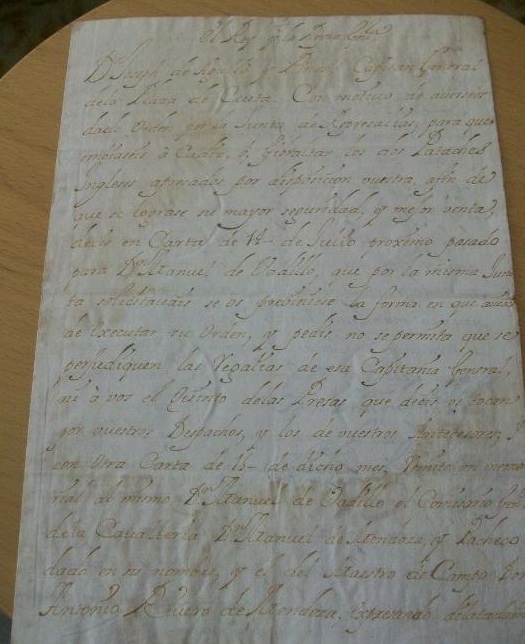 El Rey y la Reyna Gov.ra
Dn Joseph de Agulló y Capitan General
dela Plaza de Ceuta. Con motivo de averos
dado orden por la Junta de Represalias, para que
embiaseis à Cadiz, ó Gibraltar los dos Pataches
Ingleses apresados por disposicion vuestra, afin de
que se lograse su mayor seguridad, y mejor venta,
decis en Carta de de Julio proximo pasado
para Dn Manuel de Vadillo, que por la misma Jun
ta solicitavais se os previniese la forma en que aviais
de executar su orden, y pedis no se permita que se
perjudiquen las Regalias de esa Capitania General,
ni à vos el Quinto delas Presas que decis os tocan
por vuestros Despachos, y los de vuestros Antecesores,
con otra Carta de 15 de dicho mes, remite un memo
rial al mismo Dn Manuel de Vadillo el Comisario
dela Cavalleria Dn Manuel de Mendoza, y Pacheco
dado en su nombre, y el del Maestro de Campo Don
Antonio Rivero de Mendoza, expresando